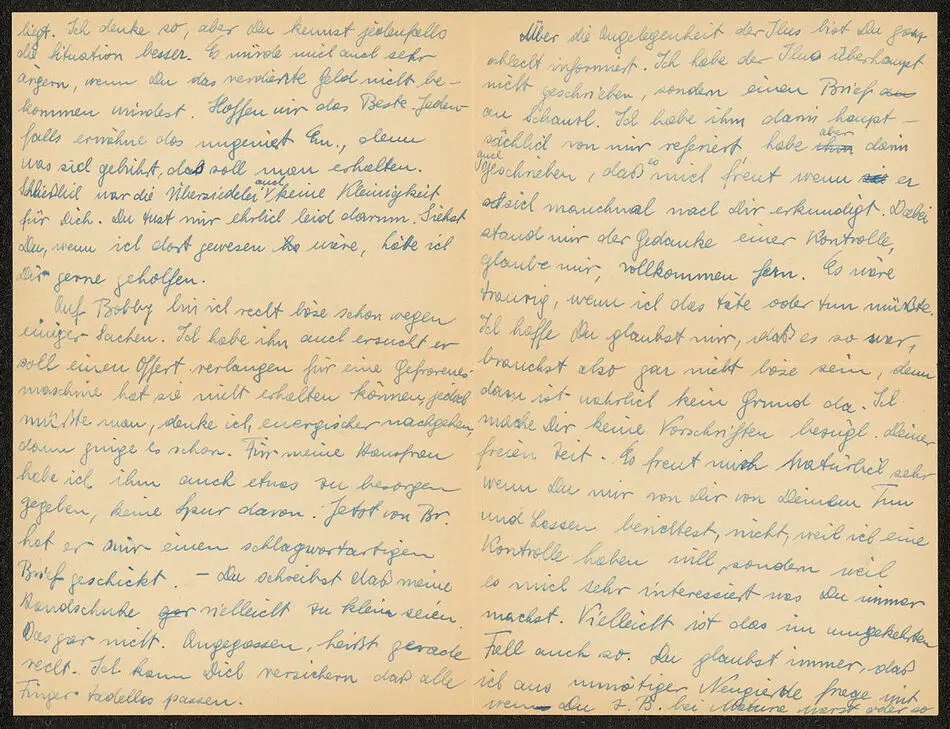 liegt. Ich denke so, aber Du kennst jedenfalls
die Situation besser. Es würde mich auch sehr
ärgern, wenn Du das verdiente Geld nicht be-
kommen würdest. Hoffen wir das Beste. Jeden-
falls erwähne das ungeniert Em., denn
was sich gebührt, daß soll man erhalten.
Schließlich war die Übersiedelei auch keine Kleinigkeit
für Dich. Du tust mir ehrlich leid darum. Siehst
Du, wenn ich dort gewesen wäre, hätte ich
Dir gerne geholfen.
Auf Bobby bin ich recht böse schon wegen
einiger Sachen. Ich habe ihn auch ersucht er
soll einen Offert verlangen für eine Gefrorenes-
maschine hat sie nicht erhalten können, jedoch
müßte man, denke ich, energischer nachgehen,
dann ginge es schon. Für meine Hausfrau
habe ich ihm auch etwas zu besorgen
gegeben, keine Spur davon. Jetzt von Br.
hat er mir einen schlagwortartigen
Brief geschickt. – Du schreibst daß meine
Handschuhe gar vielleicht zu klein seien.
Das gar nicht. Angegossen, heißt gerade
recht. Ich kann Dich versichern daß alle
Finger tadellos passen.
Über die Angelegenheit der Ilus bist Du ganz
schlecht informiert. Ich habe der Ilus überhaupt
nicht geschrieben, sondern einen Brief
an Schantl. Ich habe ihm darin haupt-
sächlich von mir referiert habe aber darin
auch geschrieben, daß es mich freut wenn er
sich manchmal nach Dir erkundigt. Dabei
stand mir der Gedanke einer Kontrolle,
glaube mir, vollkommen fern. Es wäre
traurig, wenn ich das täte oder tun müßte.
Ich hoffe Du glaubst mir, daß es so war,
brauchst also gar nicht böse sein, denn
dazu ist wahrlich kein Grund da. Ich
mache Dir keine Vorschriften bezügl. Deiner
freien Zeit. Es freut mich natürlich sehr
wenn Du mir von Dir von Deinem Tun
und Lassen berichtest, nicht, weil ich eine
Kontrolle haben will, sondern weil
es mich sehr interessiert was Du immer
machst. Vielleicht ist das im umgekehrten
Fall auch so. Du glaubst immer, daß
ich aus unnötiger Neugierde frage mit
wem Du z. B. bei warst oder so